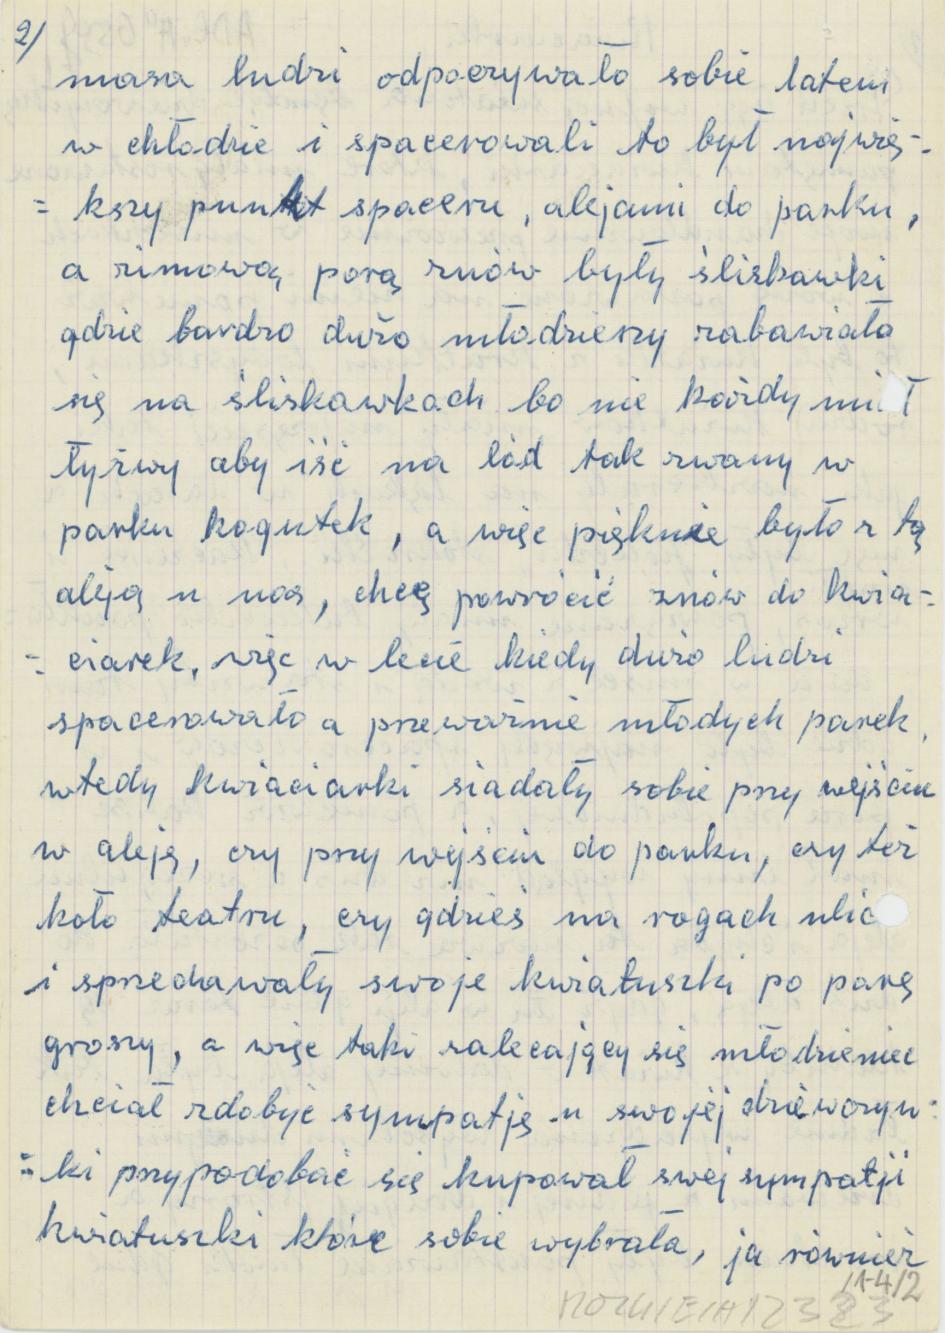 2/
masa ludzi odpoczywało sobie latem
w chłodzie i spacerowali to był najwię-
= kszy punkt spaceru, alejami do parku,
a zimową porą znów były śliskawki
gdzie bardzo dużo młodzieży zabawiało
się na śliskawkach bo nie każdy miał
łyżwy aby iść na lód tak zwany w
parku Kogutek, a więc pięknie było z tą
aleją u nas, chcę powrócić znów do kwia-
= ciarek, więc w lecie kiedy dużo ludzi
spacerowało a przeważnie młodych parek,
wtedy kwiaciarki siadały sobie przy wejściu
w aleję, czy przy wejściu do parku, czy też
koło teatru, czy gdzieś na rogach ulic
i sprzedawały swoje kwiatuszki po parę
groszy, a więc taki zalecający się młodzieniec
chciał zdobyć sympatję u swojej dziewczyn=
= ki przypodobać się kupował swej sympatji
kwiatuszki które sobie wybrała, ja również
11-4/2